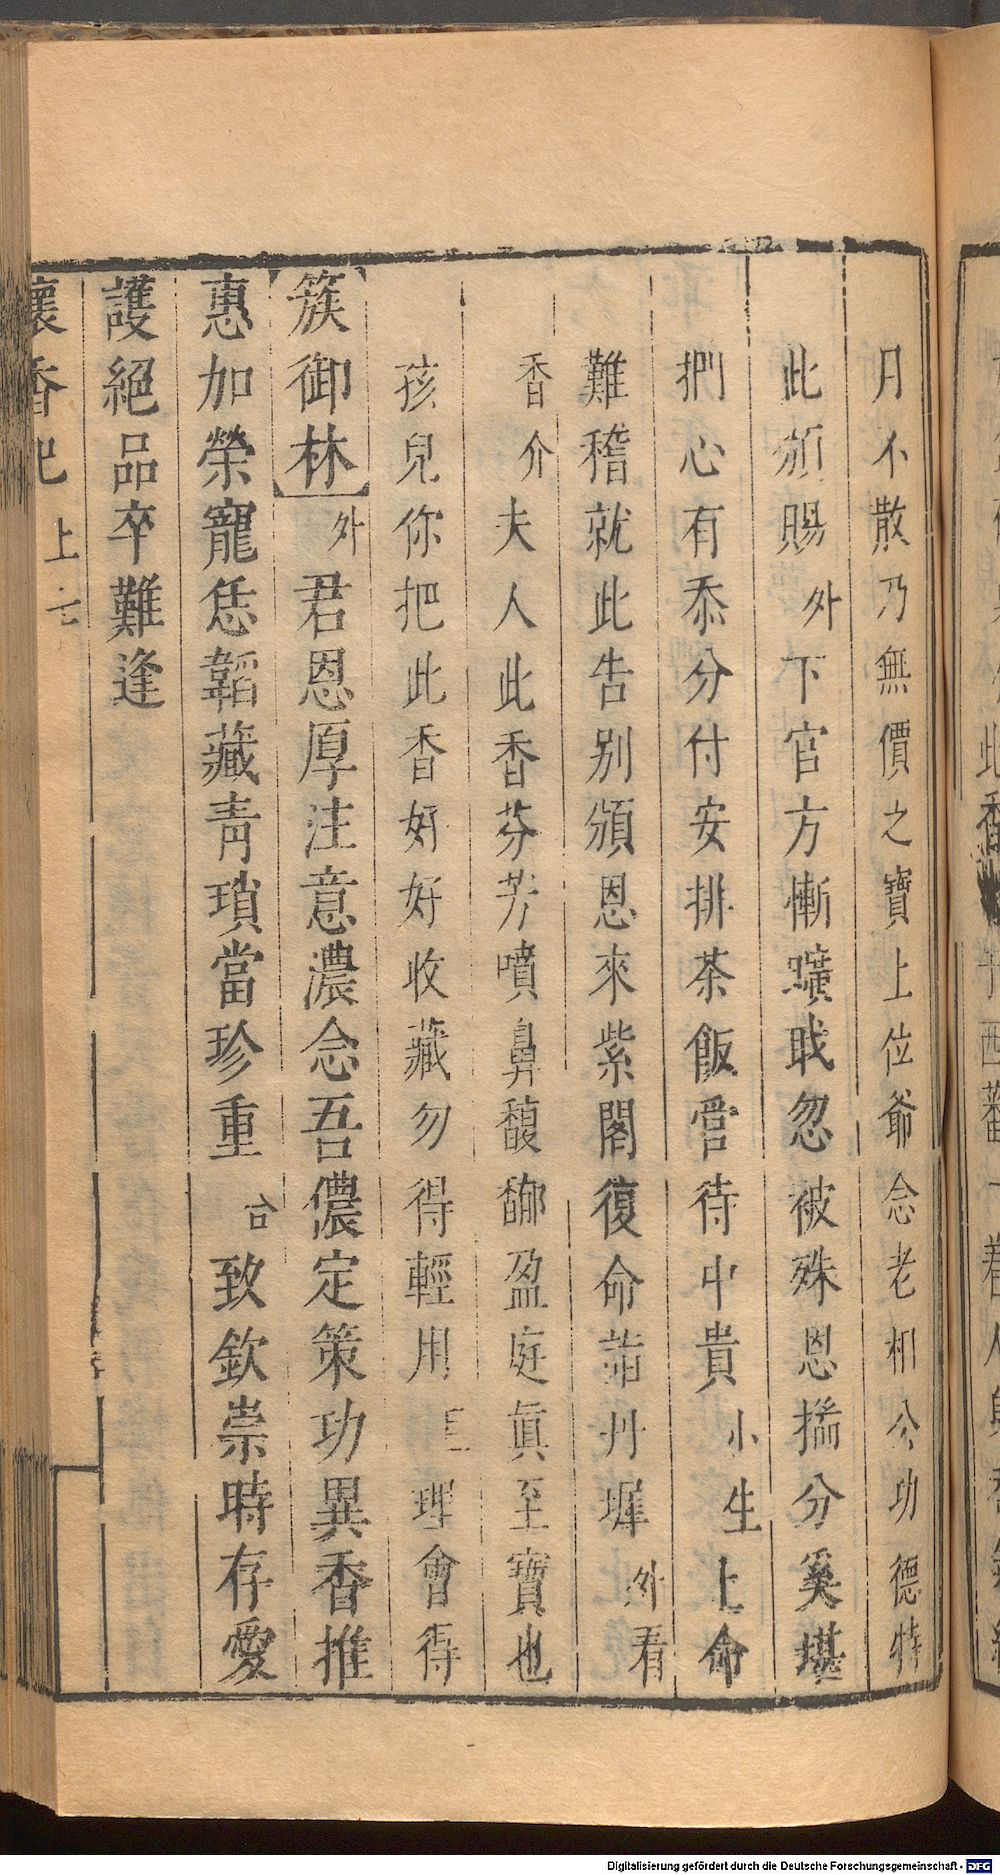 月不散乃無價之寶上位爺念老相公功德特
此頒賜外下官方慚曠職忽被殊恩揣分奚堪
捫心有忝分付安排茶飯管待中貴小生上命
難稽就此告別頒恩來紫閣復命詣丹墀外看
香介夫人此香芬芳噴鼻馥郁盈庭眞至寶也
孩兒你把此香好好收藏勿得輕用 理會得
簇御林外君恩厚注意濃念吾儂定策功異香推
惠加榮寵恁韜藏靑瑣當珍重合致欽崇時存愛
護絕品卒難逢
懷香記 上
Digitalisierung gefördert durch die Deutsche Forschungsgemeinschaft - DFG